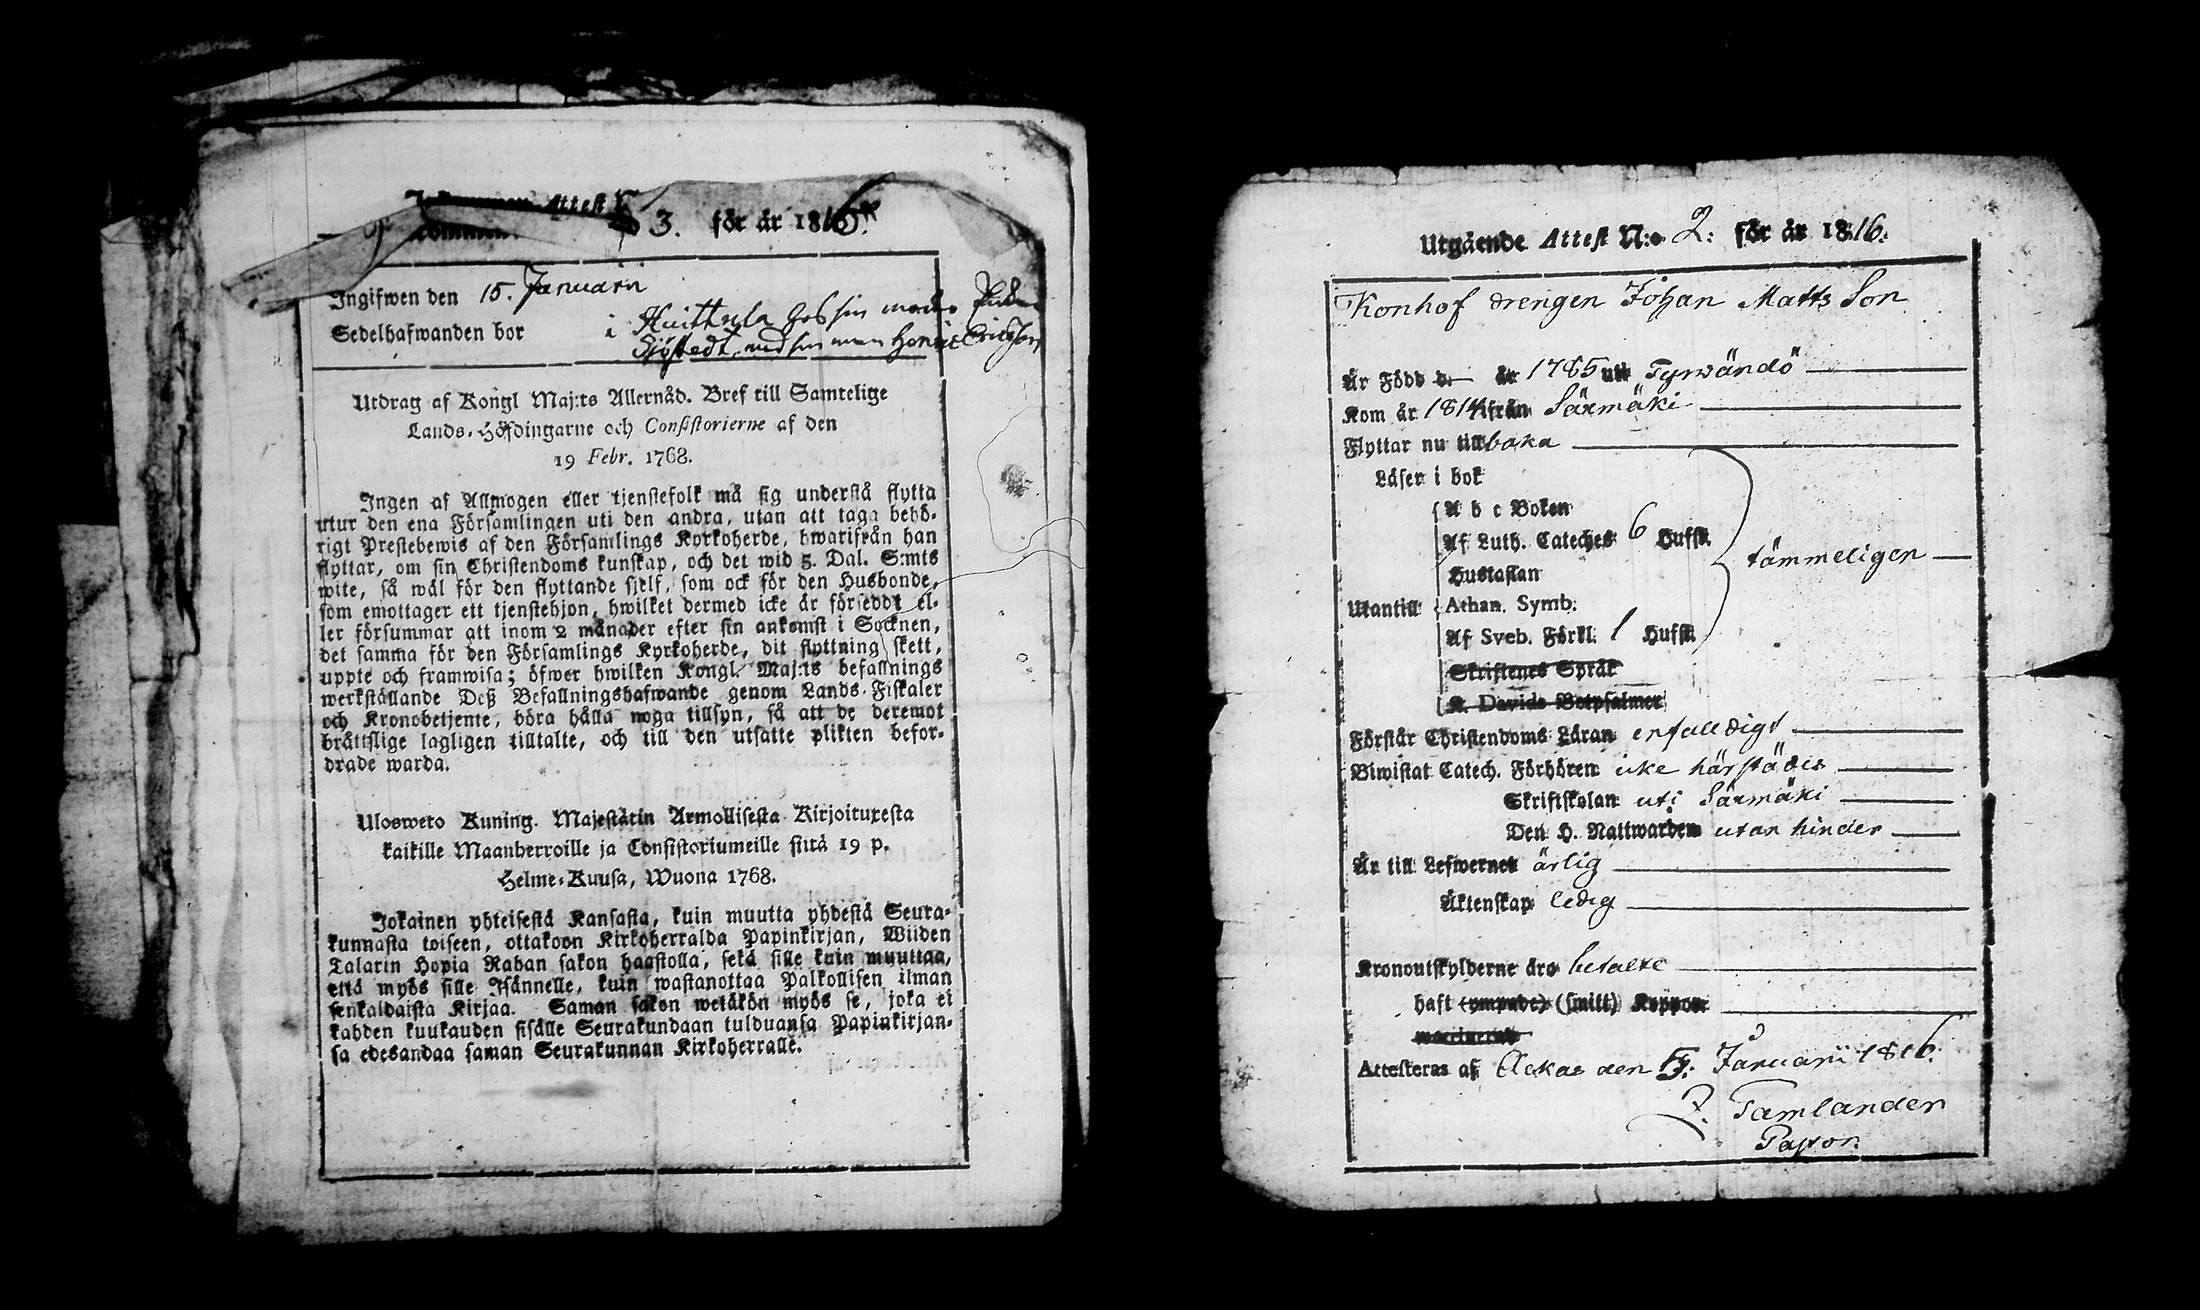 Inkommen Attest N:o 3. för år 1816.
Ingifwen den 15. Januarii
Sedelhafwanden bor i Huittula hos sin
Sjöstedt, med sin man
Utdrag af Kongl Maj:ts Allernåd. Bref till Samtelige
Lands-Höfdingarne och Consistorierne af den
19 Febr. 1768.
Ingen af Allmogen eller tjenstefolk må sig understå flytta
utur den ena Församlingen uti den andra, utan att taga behö-
rigt Prestebewis af den Församlings Kyrkoherde, hwarifrån han
flyttar, om sin Christendoms kunskap, och det wid 5. Dal. S:mts
wite, så wäl för den flyttande sjelf, som ock för den Husbonde,
som emottager ett tjenstehjon, hwilket dermed icke är försedt el-
ler försummar att inom 2 månader efter sin ankomst i Socknen,
det samma för den Församlings Kyrkoherde, dit flyttning skett,
uppte och framwisa; öfwer hwilken Kongl. Maj:ts befallnings
werkställande Deß Befallningshafwande genom Lands-Fiskaler
och Kronobetjente, böra hålla noga tillsyn, så att de deremot
bråttslige lagligen tilltalte, och till den utsatte plikten befor-
drade warda.
Ulosweto Kuning. Majestätin Armollisesta Kirjoituxesta
kaikille Maanherroille ja Consistoriumeille siitä 19 p.
Helme-Kuusa, Wuona 1768.
Jokainen yhteisestä Kansasta, kuin muutta yhdestä Seura-
kunnasta toiseen, ottakoon Kirkoherralda Papinkirjan, Wiiden
Talarin Hopia Rahan sakon haastolla, sekä sille kuin muuttaa,
että myös sille Isännelle, kuin wastanottaa Palkollisen ilman
senkaldaista Kirjaa. Saman sakon wetäkön myös se, joka ei
kahden kuukauden sisälle Seurakundaan tulduansa Papinkirjan-
sa edesandaa saman Seurakunnan Kirkoherralle.
Utgående Attest N:o 2: för år 1816.
Konhof drengen Johan Matts Son
Är Född d. år 1785 uti Tyrwändö
Kom år 1814 ifrån Särmäki
Flyttar nu tillbaka
Läser i bok
A b c Boken
Af Luth. Cateches 6 Hufst.
Hustaflan
tämmeligen
Utantill Athan. Symb:
Af Sveb. Förkl. 1 Hufst.
Skriftenes Språk
K. Davids Botpsalmer
Förstår Christendoms Läran enfalldigt
Biwistat Catech. Förhören icke härstädes
Skriftskolan uti Särmäki
Den H. Nattwarden utan hinder
Är till Lefwernet ärlig
Äktenskap ledig
Kronoutskylderne äro betalte
haft (ympade) (smitt) Koppor
Attesteras af Ackas den 5. Januarii 1816.
J. Tamlander
Pastor.